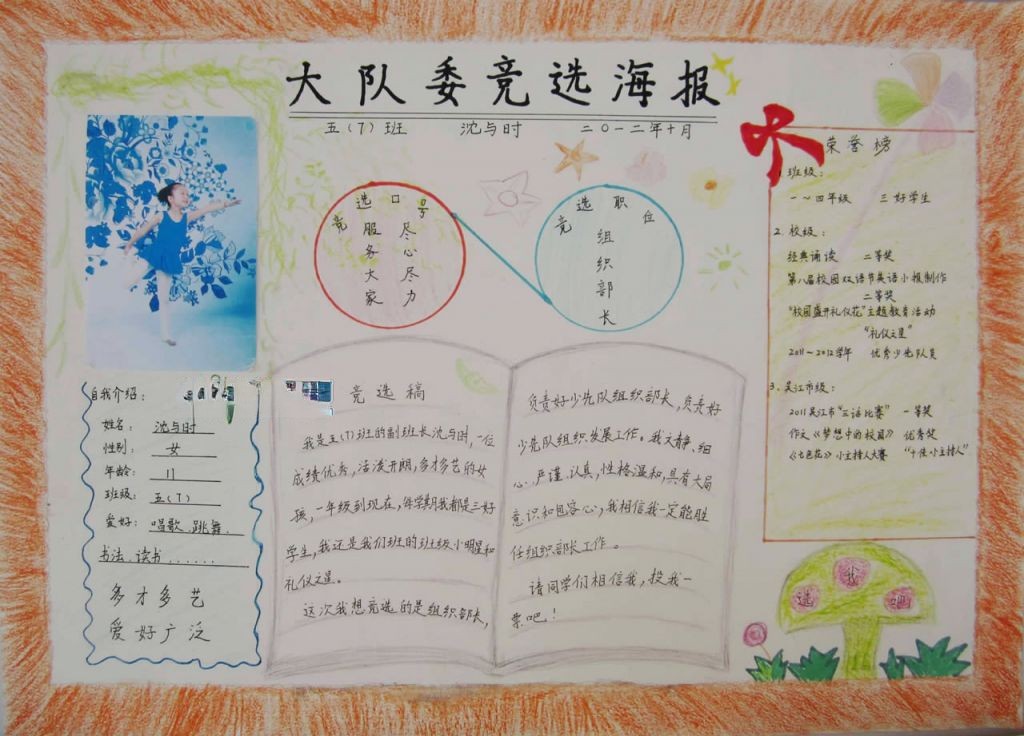 大队委竞选海报
五(7)班 沈与时 二〇一二年十月
竞选口号
服务大家
尽心尽力
竞选职位
组织部长
荣誉榜
1.班级:
一~四年级 三好学生
2.校级:
经典诵读 二等奖
第八届校园双语节英语小报制作
二等奖
“校园盛开礼仪花”主题教育活动
“礼仪之星”
2011~2012学年 优秀少先队员
3.吴江市级:
2011吴江市“三话比赛” 一等奖
作文《梦想中的校园》 优秀奖
《七色花》小主持人大赛 “十佳小主持人”
自我介绍:
姓名: 沈与时
性别: 女
年龄: 11
班级: 五(7)
爱好: 唱歌、跳舞、
书法、读书......
多才多艺
爱好广泛
竞选稿
我是五(7)班的副班长沈与时,一位
成绩优秀,活泼开朗,多才多艺的女
孩,一年级到现在,每学期我都是三好
学生,我还是我们班的班级小明星和
礼仪之星。
这次我想竞选的是组织部长,
负责好少先队组织部长,负责好
少先队组织发展工作。我文静、细
心、严谨、认真,性格温和,具有大局
意识和包容心,我相信我一定能胜
任组织部长工作。
请同学们相信我,投我一
票吧!
选我吧